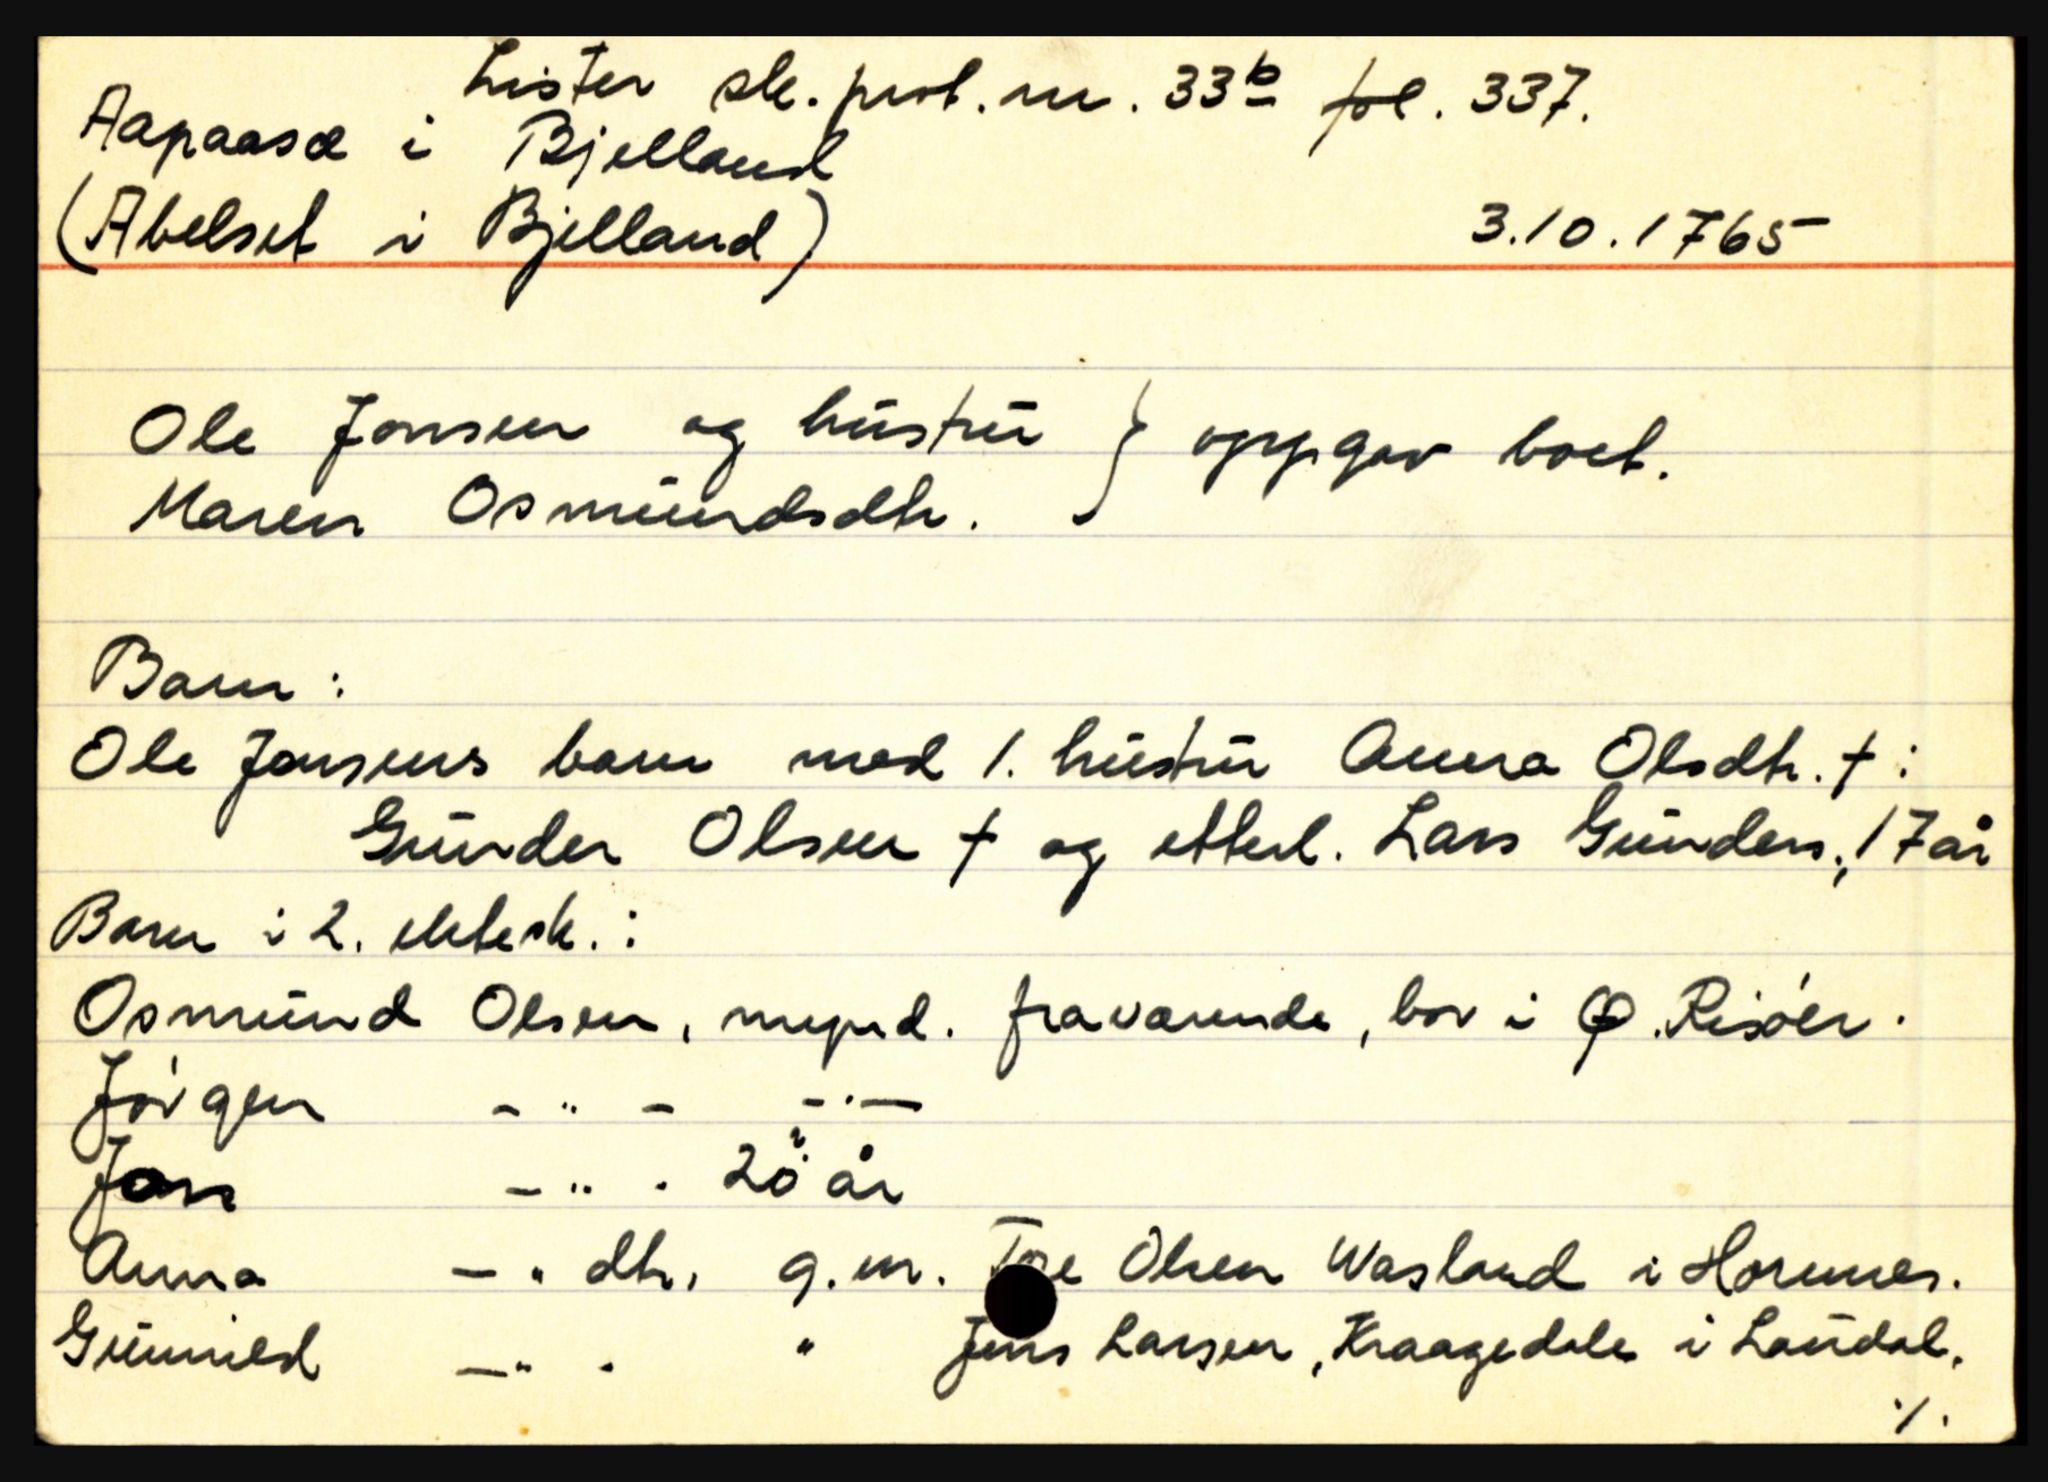 Lister sk. prot. nr. 33b fol. 337.
Aapaasæ i Bjelland
(Abelset i Bjelland) 3.10.1765
Ole Jonsen og hustru } oppgav boet.
Maren Osmundsdtr.
Barn:
Ole Jonsens barn med 1. hustru Anna Olsdtr. †:
Gunder Olsen † og etterl. Lars Gunders., 17 år
Barn i 2. ektesk.:
Osmund Olsen, mynd. fraværende, bor i Ø. Risöer.
Jörgen - " - - " -
Jons - " - 20 år
Anna - " dtr, g.m. Tore Olsen Wasland i Hornnes.
Gunnild - " - " Jens Larsen, Kraagedale i Laudal.
./.